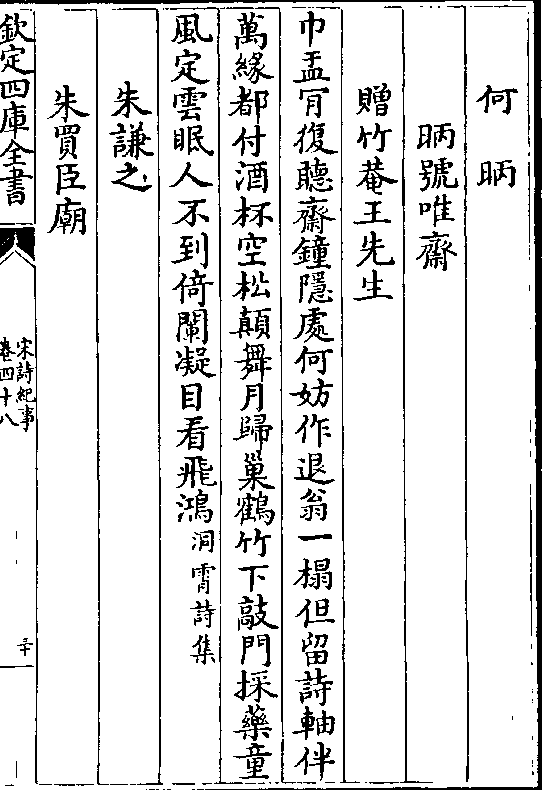 何昞
昞號唯齋
贈竹菴王先生
巾盂肎復聽齋鐘隱處何妨作退翁一榻但留詩軸伴
萬緣都付酒杯空松顛舞月歸巢鶴竹下敲門採藥童
風定雲眠人不到倚闌凝目看飛鴻洞霄詩集
朱謙之
朱買臣廟
欽定四庫全書
宋詩紀事
卷四十八
三十